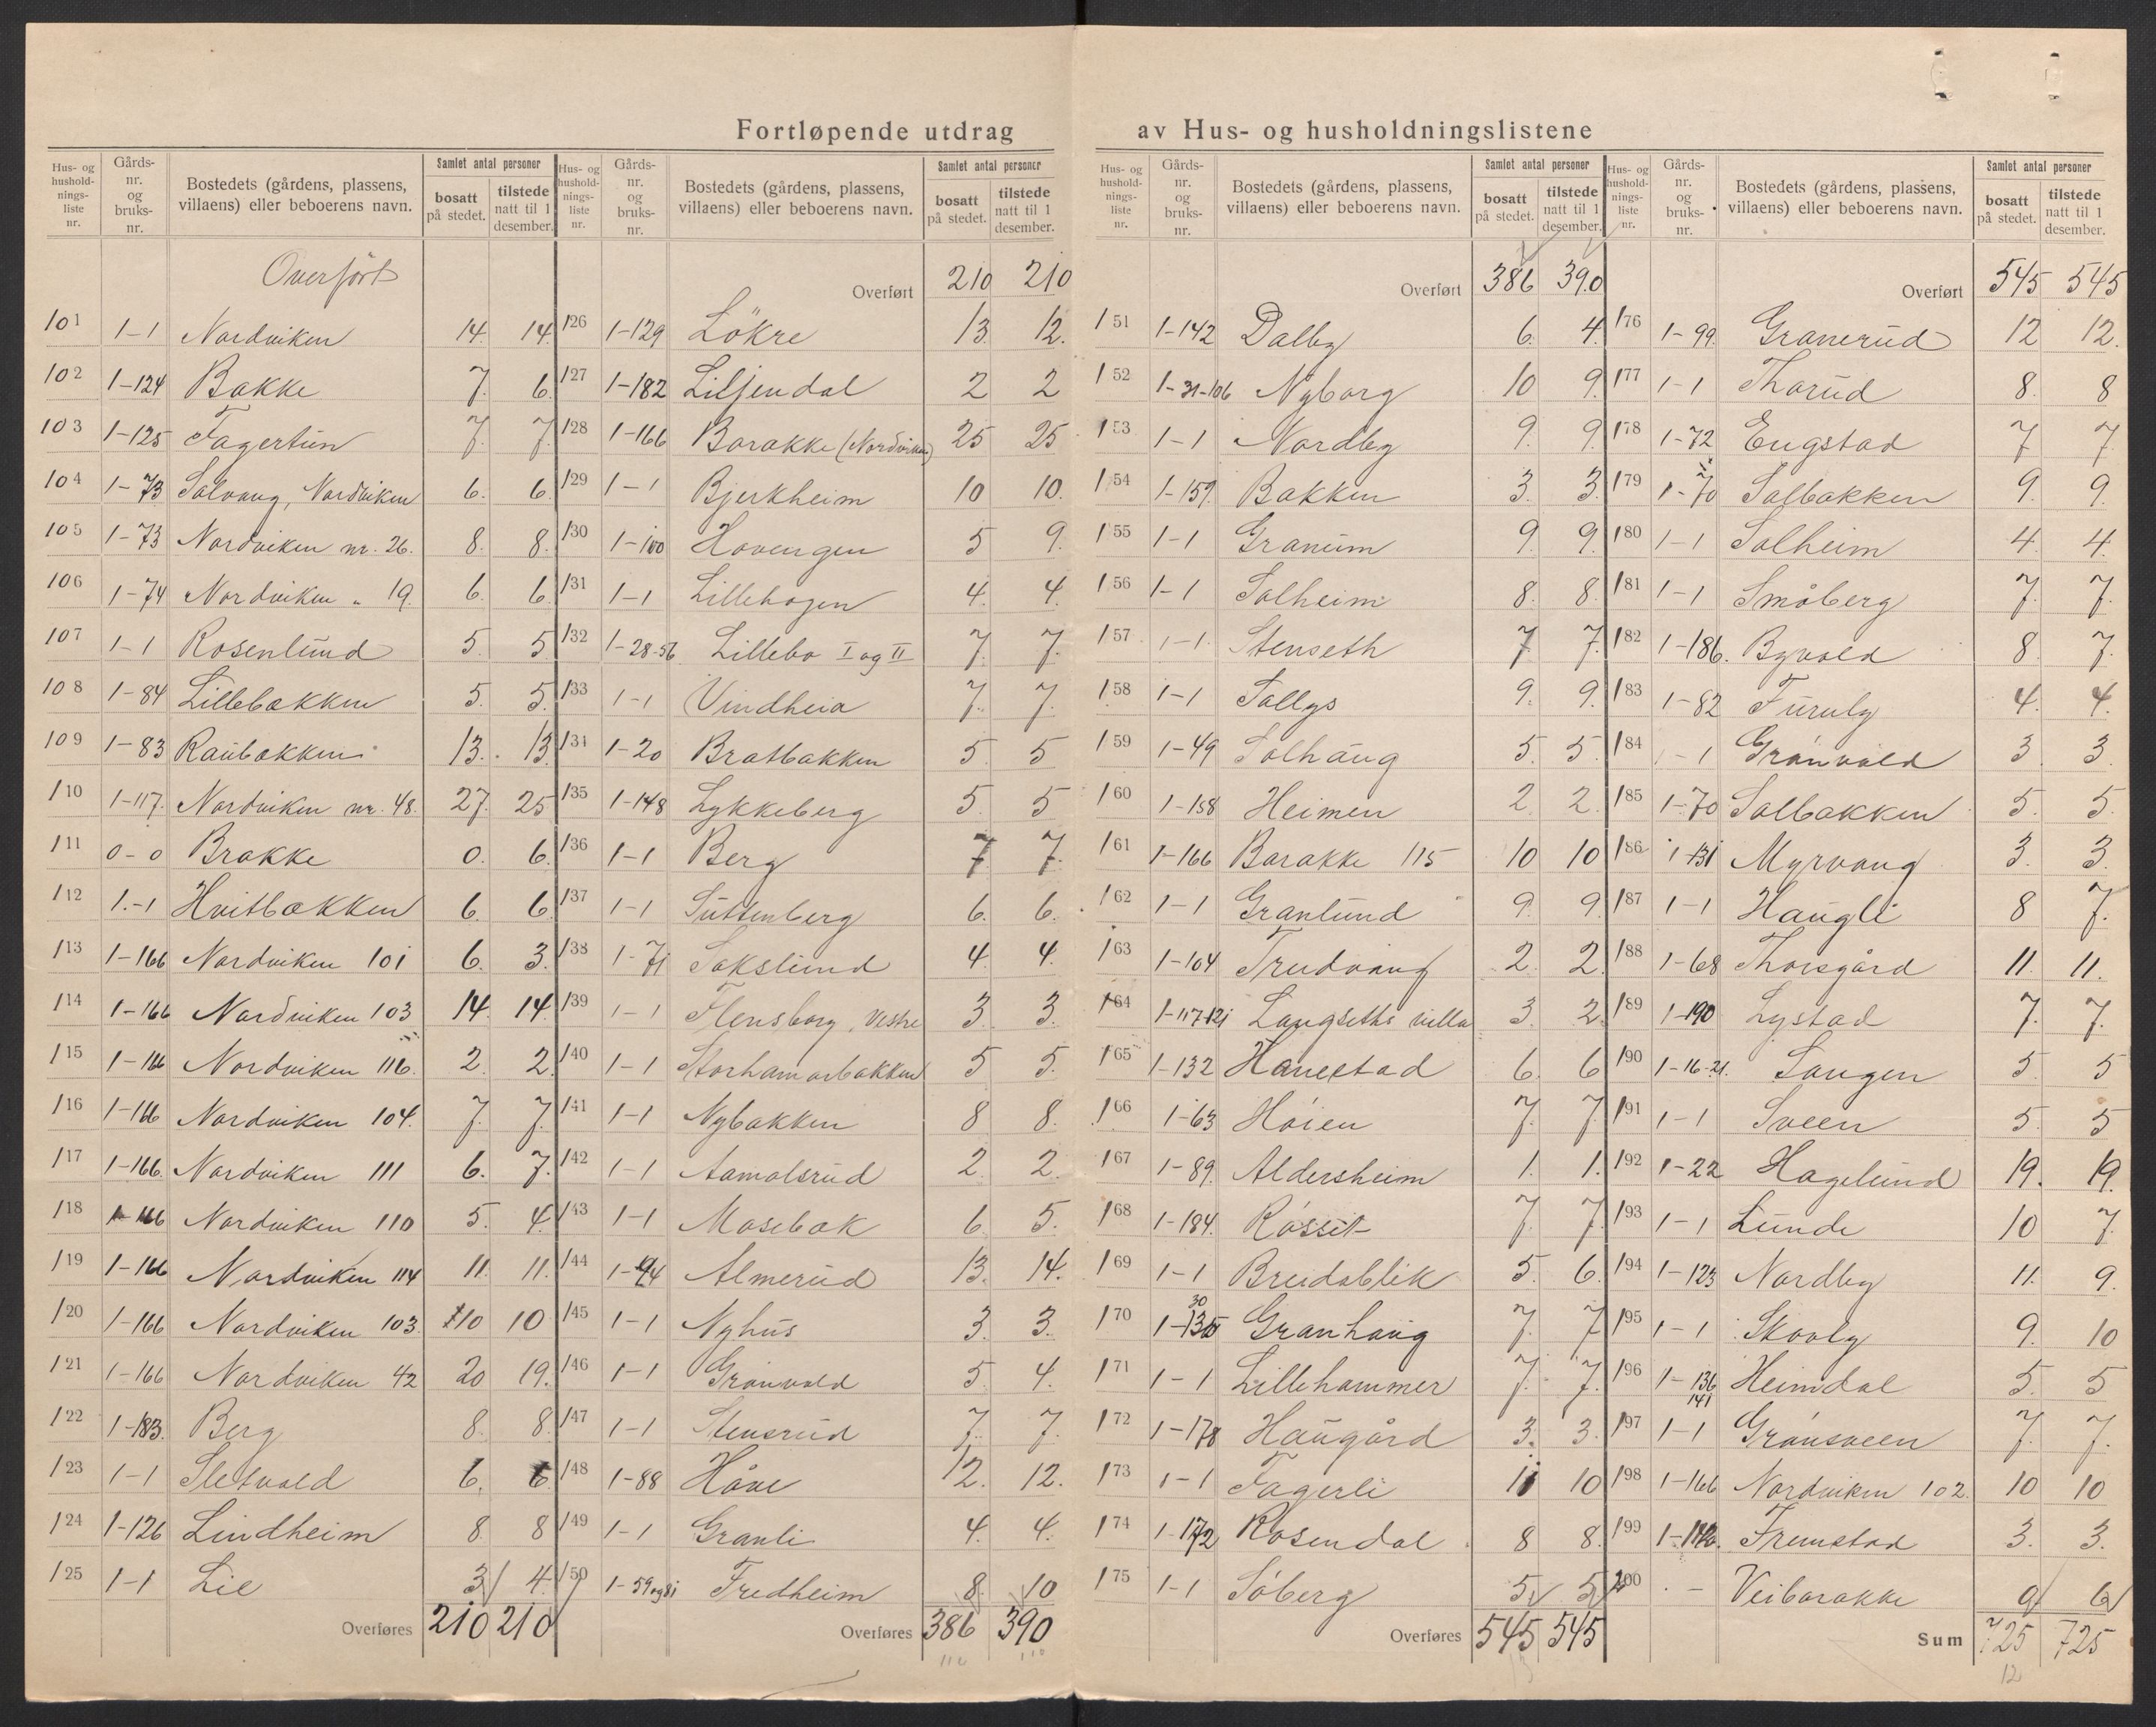 Fortløpende utdrag av Hus- og husholdningslistene
Hus- og husholdningsliste nr. Gårdsnr. og bruksnr. Bostedets (gårdens, plassens, villaens) eller beboerens navn. Samlet antal personer bosatt på stedet. tilstede natt til 1 desember.
Overført
101 1-1 Nordviken 14. 14.
102 1-124 Bakke 7. 6.
103 1-125 Fagertun 7. 7.
104 1-73 Solvang, Nordviken 6. 6.
105 1-73 Nordviken nr. 26. 8. 8.
106 1-74 Nordviken " 19. 6. 6.
107 1-1 Rosenlund 5. 5.
108 1-84 Lillebakken 5. 5.
109 1-83 Raubakken 13. 13.
110 1-117. Nordviken nr. 48. 27. 25
111 0-0 Brakke 0. 6.
112 1.-1 Hvitbakken 6. 6.
113 1-166 Nordviken 101 6. 3.
114 1-166 Nordviken 103 14. 14.
115 1-166 Nordviken 116. 2. 2.
116 1-166 Nordviken 104. 7. 7.
117 1-166. Nordviken 111 6. 7.
118 1-166 Nordviken 110 5. 4.
119 1-166 Nordviken 114 11. 11.
120 1-166 Nordviken 103. 10 10
121 1-166 Nordviken 42 20 19.
122 1-183. Berg 8. 8.
123 1-1 Sletvold 6. 6
124 1-126 Lindheim 8. 8
125 1-1 Lie 3 4.
Overføres 210 210
Hus- og husholdningsliste nr. Gårdsnr. og bruksnr. Bostedets (gårdens, plassens, villaens) eller beboerens navn. Samlet antal personer bosatt på stedet. tilstede natt til 1 desember.
Overført 210 210
126 1-129 Lökre 13. 12.
127 1-182 Liljendal 2 2
128 1-166 Barakke (Nordviken) 25 25
129 1-1 Bjerkheim 10 10.
130 1-100 Hovengen 5 9.
131 1-1 Lillehagen 4. 4.
132 1-28-56 Lillebo I og II 7. 7.
133 1-1 Vindheia 7. 7.
134 1-20 Bratbakken 5. 5
135 1-148 Lykkeberg 5. 5
136 1-1 Berg 7. 7.
137 1-1 Suttenberg 6. 6.
138 1-71 Sakslund 4. 4.
139 1-1 Flensborg, vestre 3. 3.
140 1-1 Storhamarbakken 5 5.
141 1-1 Nybakken 8 8.
142 1-1 Aamodsrud 2. 2.
143 1-1 Mosebak 6. 5.
144 1-94 Almerud 13. 14.
145 1-1 Nyhus 3. 3.
146 1-1 Grönvold 5. 4.
147 1-1 Stensrud 7. 7.
148 1-88 Håve 12. 12.
149 1-1 Granli 4. 4.
150 1-59 og 81 Fredheim 8. 10
Overføres 386 390
Hus- og husholdningsliste nr. Gårdsnr. og bruksnr. Bostedets (gårdens, plassens, villaens) eller beboerens navn. Samlet antal personer bosatt på stedet. tilstede natt til 1 desember.
Overført 386 390
151 1-142 Dalby 6. 4.
152 1-31-106 Nyborg 10 9.
153 1-1 Nordby 9. 9.
154 1-159. Bakken 3. 3.
155 1-1 Granum 9. 9.
156 1-1 Solheim 8. 8.
157 1-1. Stenseth 7 7.
158 1-1 Sollys 9. 9.
159 1-49 Solhaug 5. 5.
160 1-158 Heimen 2. 2.
161 1-166 Barakke 115 10 10
162 1-1 Granlund 9. 9.
163 1-104 Trudvang 2. 2.
164 1-117-121 Langseths villa 3. 2.
165 1-132 Hanestad 6. 6
166 1-63 Höien 7. 7.
167 1-89. Aldersheim 1. 1.
168 1-184. Rösset 7. 7.
169 1-1 Breidablik 5. 6.
170 1-135 30 Granhaug 7. 7
171 1-1 Lillehammer 7. 7.
172 1-178 Haugård 3. 3.
173 1-1 Fagerli 11 10
174 1-172 Rosendal 8 8.
175 1-1 Söberg 5. 5.
Overføres 545 545
Hus- og husholdningsliste nr. Gårdsnr. og bruksnr. Bostedets (gårdens, plassens, villaens) eller beboerens navn. Samlet antal personer bosatt på stedet. tilstede natt til 1 desember.
Overført 545 545
176 1-99. Granerud 12 12.
177 1-1 Thorud 8. 8
178 1-72 Engstad 7 7.
179 1-70 Solbakken 9. 9.
180 1-1 Solheim 4. 4.
181 1-1 Småberg 7. 7.
182 1-186. Byvold 8. 7.
183 1-82 Furuly 4. 4.
184 1-1 Grönvold 3. 3.
185 1-70 Solbakken 5. 5.
186 1-131 Myrvang 3. 3.
187 1-1 Haugli 8 7.
188 1-68 Thorsgård 11. 11.
189 1-190 Lystad 7. 7.
190 1-16-21. Saugen 5. 5
191 1-1 Sveen 5. 5
192 1-22 Hagelund 19. 19.
193 1-1 Lunde 10 7.
194 1-123 Nordby 11. 9.
195 1-1 Skovly 9. 10
196 1-136 141 Heimdal 5. 5
197 1-1 Grönsveen 7. 7.
198 1-166 Nordviken 102. 10 10
199 Fremstad 3. 3.
200 - Veibarakke 0 6
Sum 725 725
12